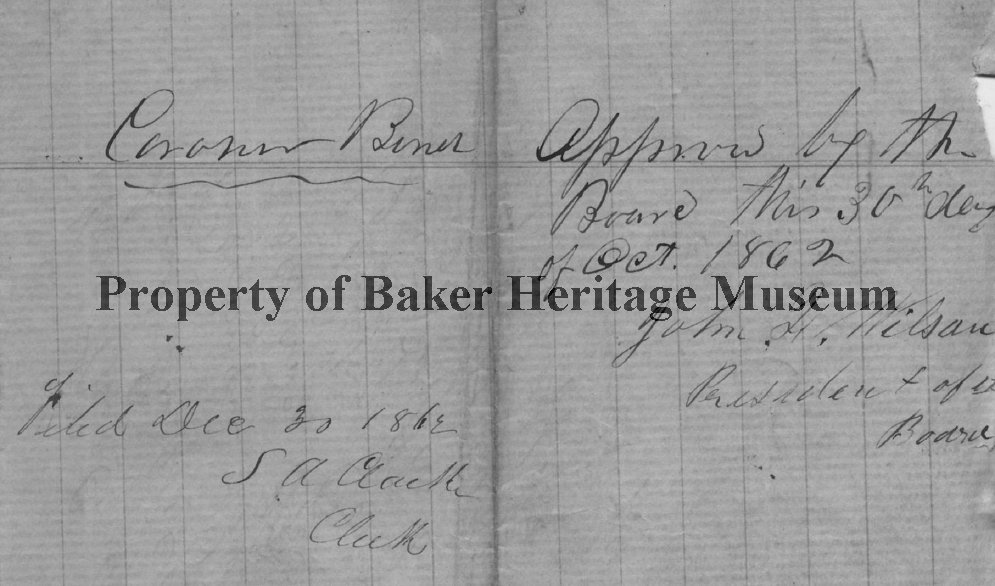 Coroner Bond
Filed Dec 30 1862
S A Clarke
Clerk
Approved by the
Board this 30th day
of Oct. 1862
John H. Wilson
President of
Board
Property of Baker Heritage Museum